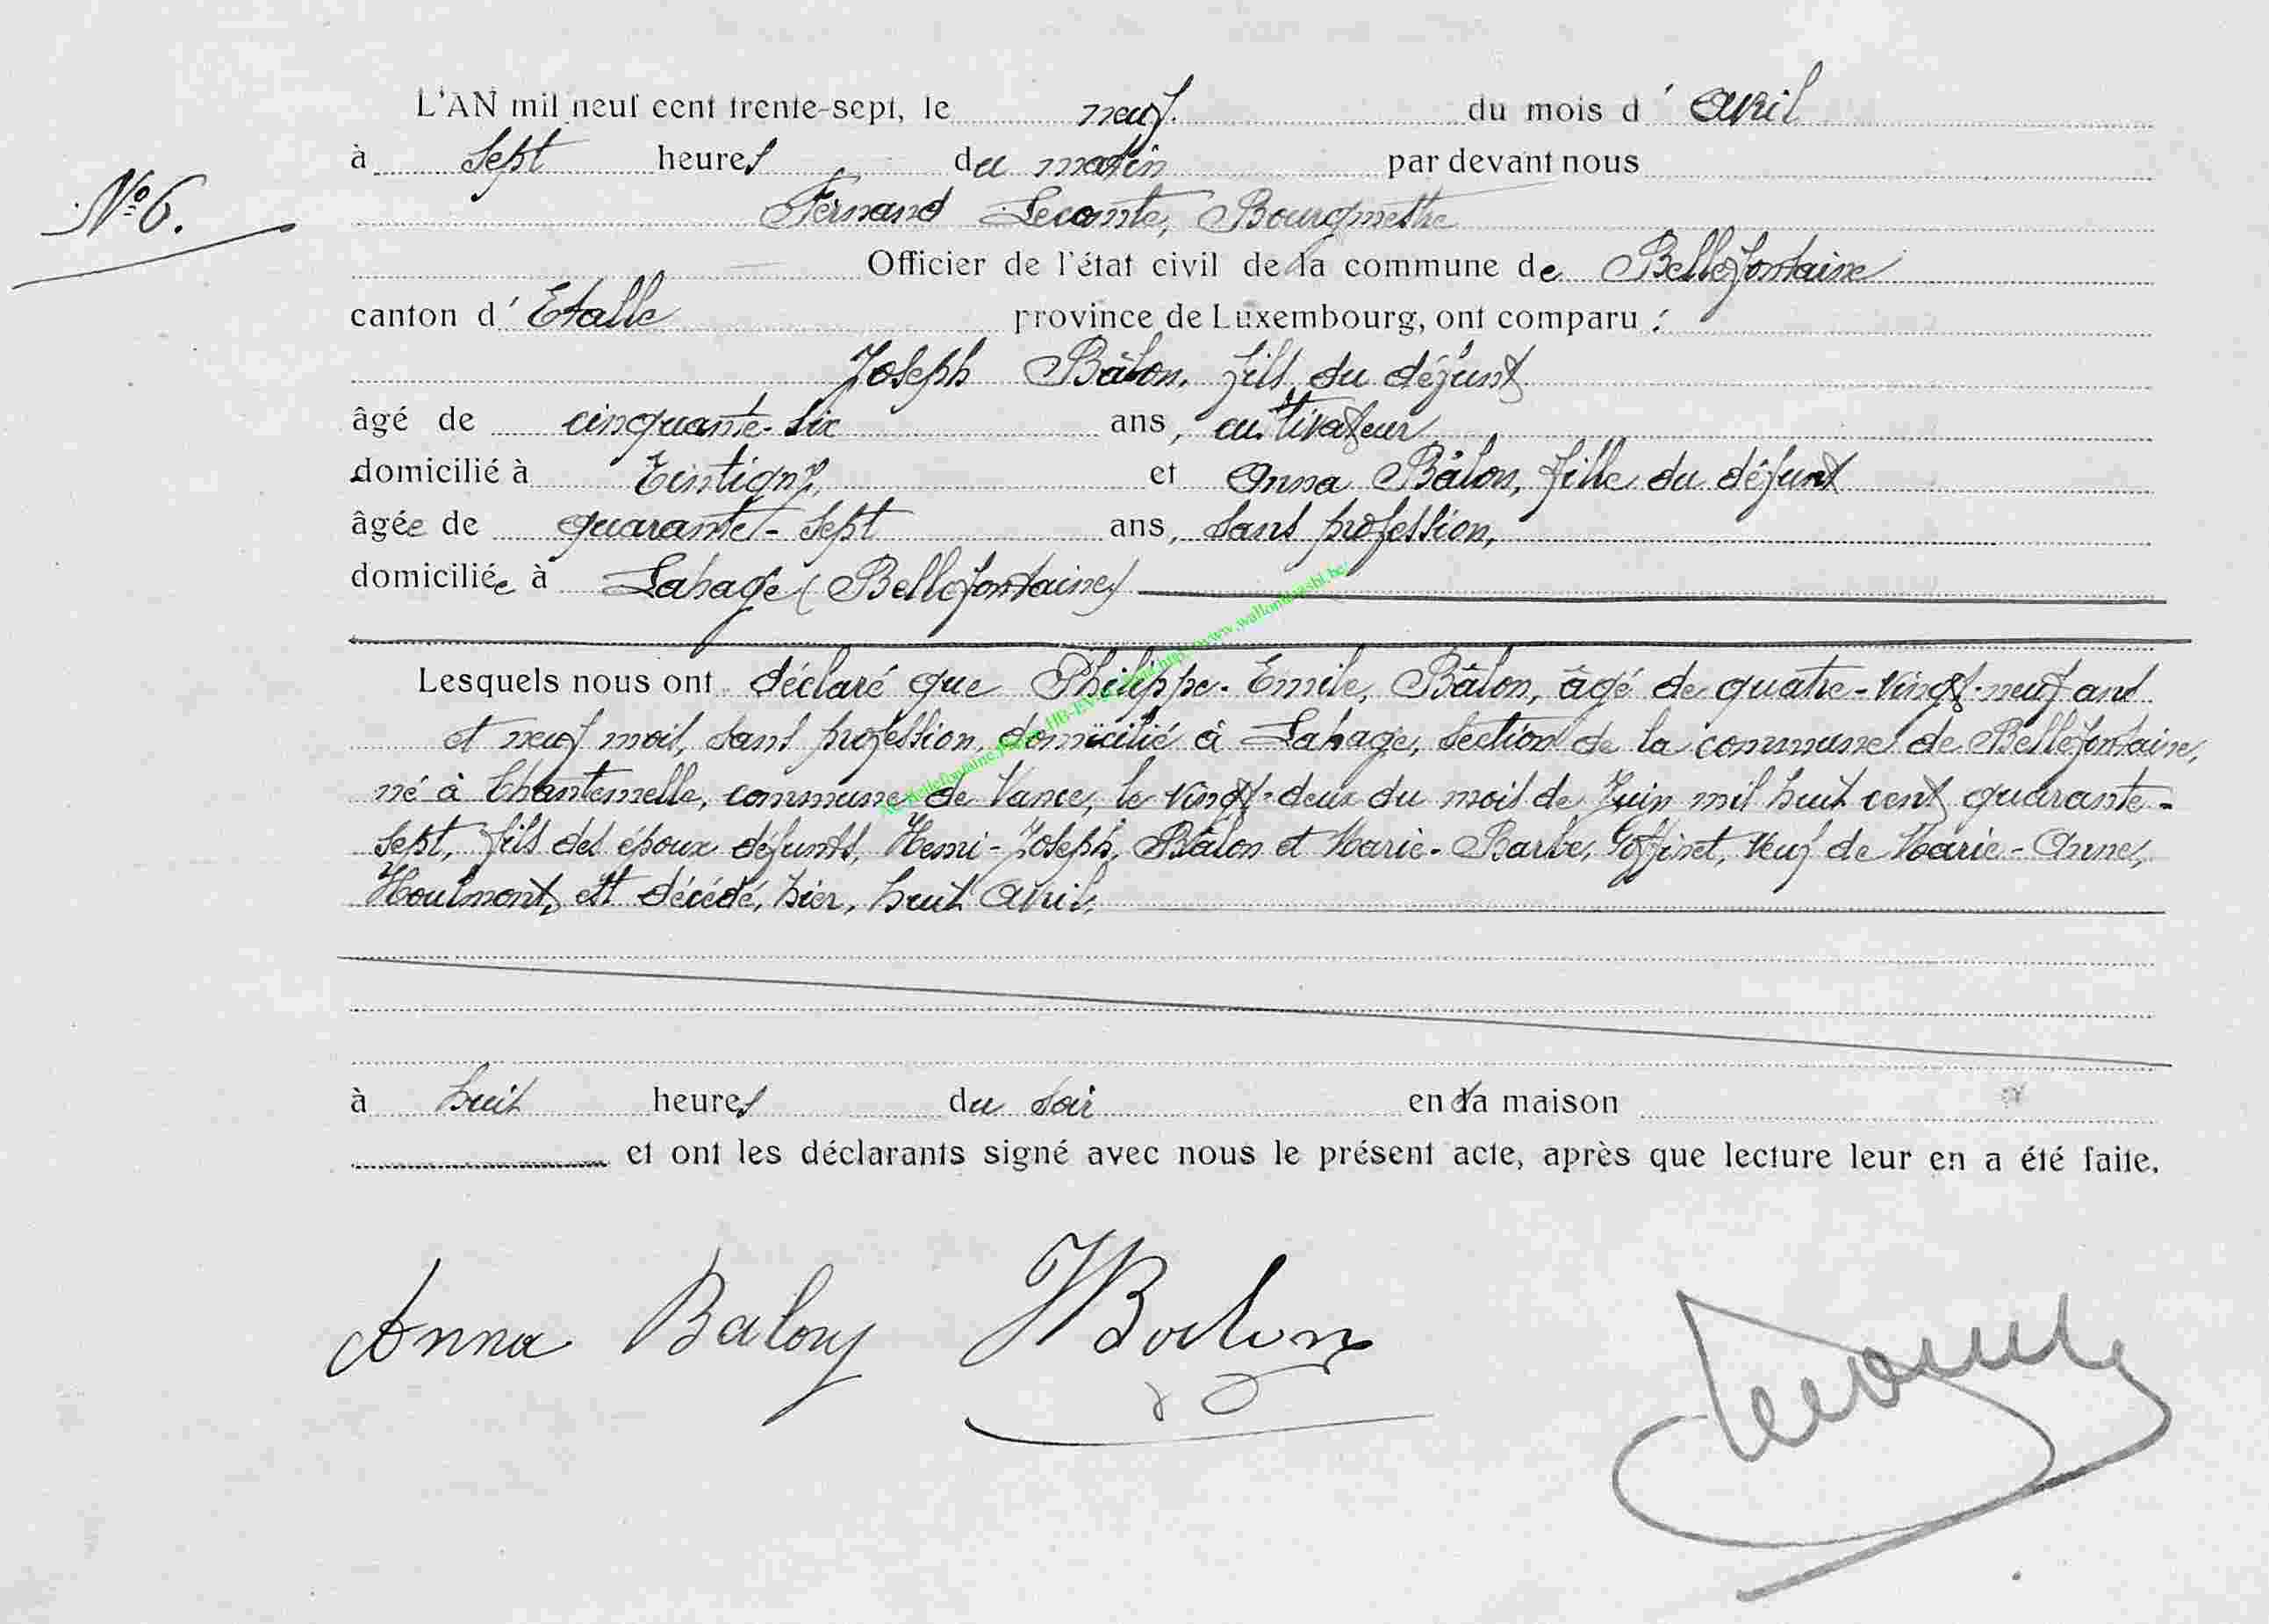 L'AN mil neuf cent trente-sept, le neuf du mois d' Avril
à sept heures du matin par devant nous
N° 6.
Fernand Lecomte, Bourgmestre
Officier de l'état civil de la commune de Bellefontaine
canton d' Etalle province de Luxembourg, ont comparu :
Joseph Bâlon, fils du défunt
âgé de cinquante-six ans, cultivateur
domicilié à Tintigny, et Anna Bâlon, fille du défunt
âgée de quarante-sept ans, sans profession,
domiciliée à Lahage (Bellefontaine)
Lesquels nous ont déclaré que Philippe-Emile, Bâlon, âgé de quatre-vingt-neuf ans
et neuf mois, sans profession, domicilié à Lahage, section de la commune de Bellefontaine,
né à Chantemelle, commune de Vance, le vingt-deux du mois de Juin mil huit cent quarante-
sept, fils des époux défunts, Henri-Joseph, Bâlon et Marie-Barbe, Goffinet, veuf de Marie-Anne,
Houlmont, est décédé, hier, huit Avril,
à huit heures du soir en sa maison
et ont les déclarants signé avec nous le présent acte, après que lecture leur en a été faite.
Anna Balon JBalon Lecomte